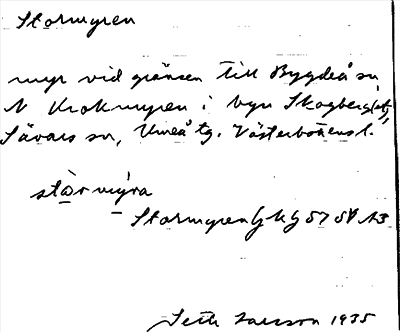 Stormyren
myr vid gränsen till Bygdeå sn
N Krokmyren i byn Skogberget,
Sävars sn, Umeå tg. Västerbottens l.
stòr mýra
Stormyren Gk 57 SV
Seth Larsson 1935